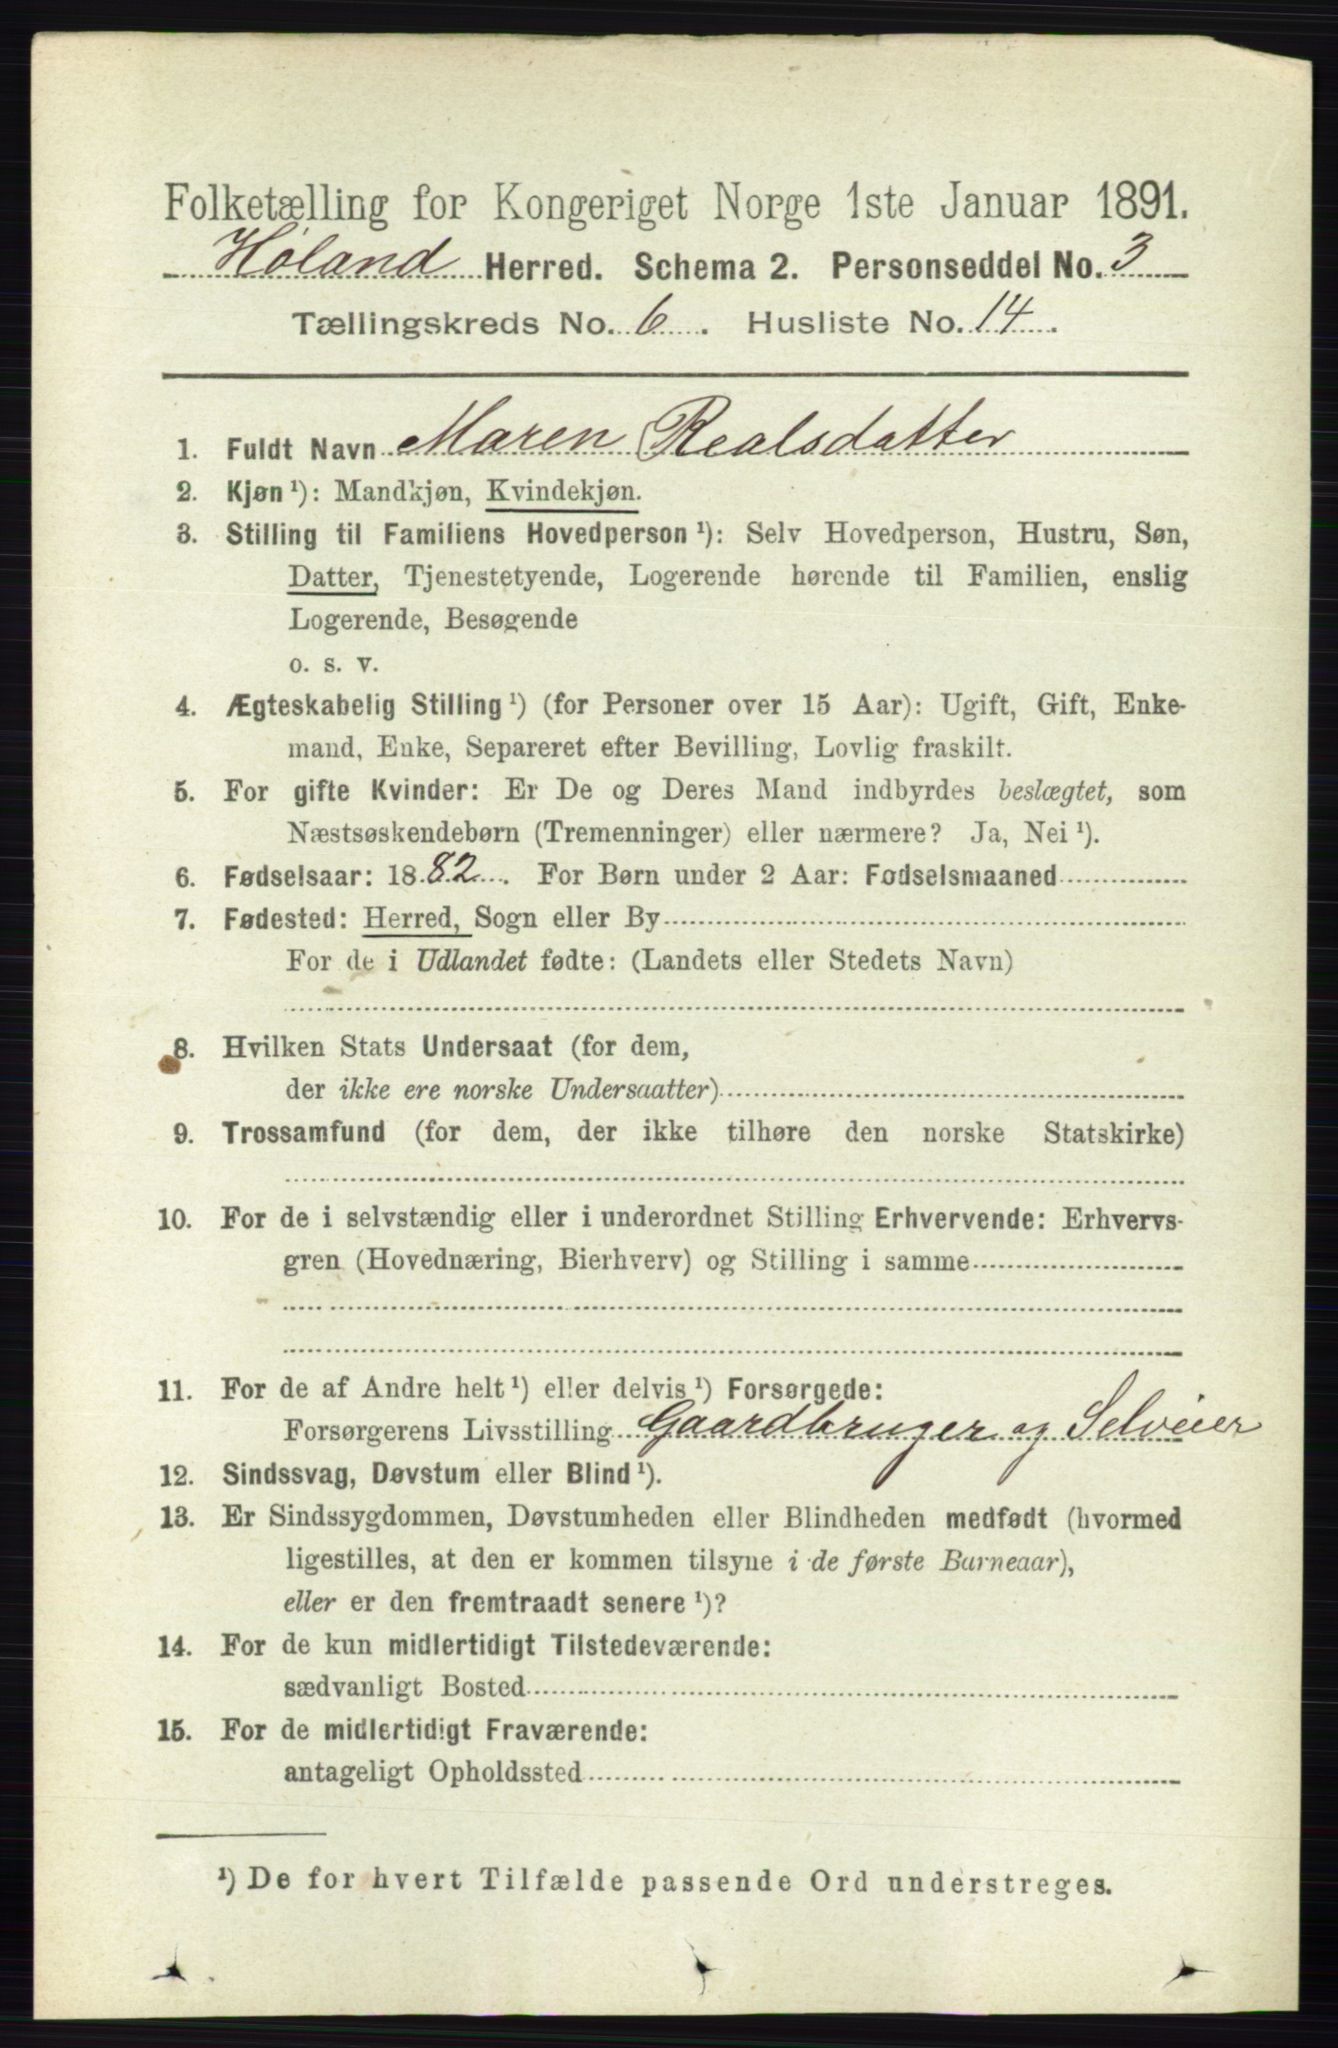 Folketælling for Kongeriget Norge 1ste Januar 1891.
Høland Herred. Schema 2. Personseddel No. 3
Tællingskreds No. 6. Husliste No. 14.
1. Fuldt Navn Maren Realsdatter
2. Kjøn ¹): Mandkjøn, Kvindekjøn.
3. Stilling til Familiens Hovedperson ¹): Selv Hovedperson, Hustru, Søn,
Datter, Tjenestetyende, Logerende hørende til Familien, enslig
Logerende, Besøgende
o. s. v.
4. Ægteskabelig Stilling ¹) (for Personer over 15 Aar): Ugift, Gift, Enke-
mand, Enke, Separeret efter Bevilling, Lovlig fraskilt.
5. For gifte Kvinder: Er De og Deres Mand indbyrdes beslægtet, som
Næstsøskendebørn (Tremenninger) eller nærmere? Ja, Nei ¹).
6. Fødselsaar: 1882. For Børn under 2 Aar: Fødselsmaaned
7. Fødested: Herred, Sogn eller By
For de i Udlandet fødte: (Landets eller Stedets Navn)
8. Hvilken Stats Undersaat (for dem,
der ikke ere norske Undersaatter)
9. Trossamfund (for dem, der ikke tilhøre den norske Statskirke)
10. For de i selvstændig eller i underordnet Stilling Erhvervende: Erhvervs-
gren (Hovednæring, Bierhverv) og Stilling i samme
11. For de af Andre helt ¹) eller delvis ¹) Forsørgede:
Forsørgerens Livsstilling Gaardbruger og Selveier
12. Sindssvag, Døvstum eller Blind ¹).
13. Er Sindssygdommen, Døvstumheden eller Blindheden medfødt (hvormed
ligestilles, at den er kommen tilsyne i de første Barneaar),
eller er den fremtraadt senere ¹)?
14. For de kun midlertidigt Tilstedeværende:
sædvanligt Bosted
15. For de midlertidigt Fraværende:
antageligt Opholdssted
¹) De for hvert Tilfælde passende Ord understreges.